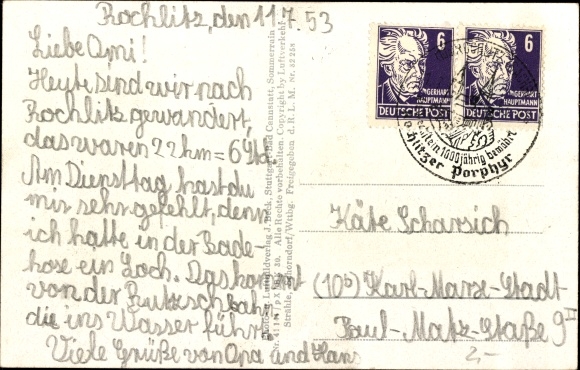 Rochlitz, den 11.7.53
Liebe Omi!
Heute sind wir nach
Rochlitz gewandert,
das waren 22 km = 6 Std.
Am Diensttag hast du
mir sehr gefehlt, denn
ich hatte in der Bade-
hose ein Loch. Das kommt
von der Rutschbahn
die ins Wasser führt
Viele Grüße von Opa und Hans
Luftbildverlag J. Beck, Stuttgart-Bad Cannstatt, Sommerrain
Alle Rechte vorbehalten. Copyright by Luftverkehr
Strähle, Schorndorf/Wttbg. Freigegeben d. R. L. M. Nr.
6
GERHART
HAUPTMANN
DEUTSCHE POST
6
GERHART
HAUPTMANN
DEUTSCHE POST
1000jährig bewährt
chlitzer Porphyr
Käte Scharsich
(10b) Karl-Marx-Stadt
Paul-Matz-Staße 9 II
2,-